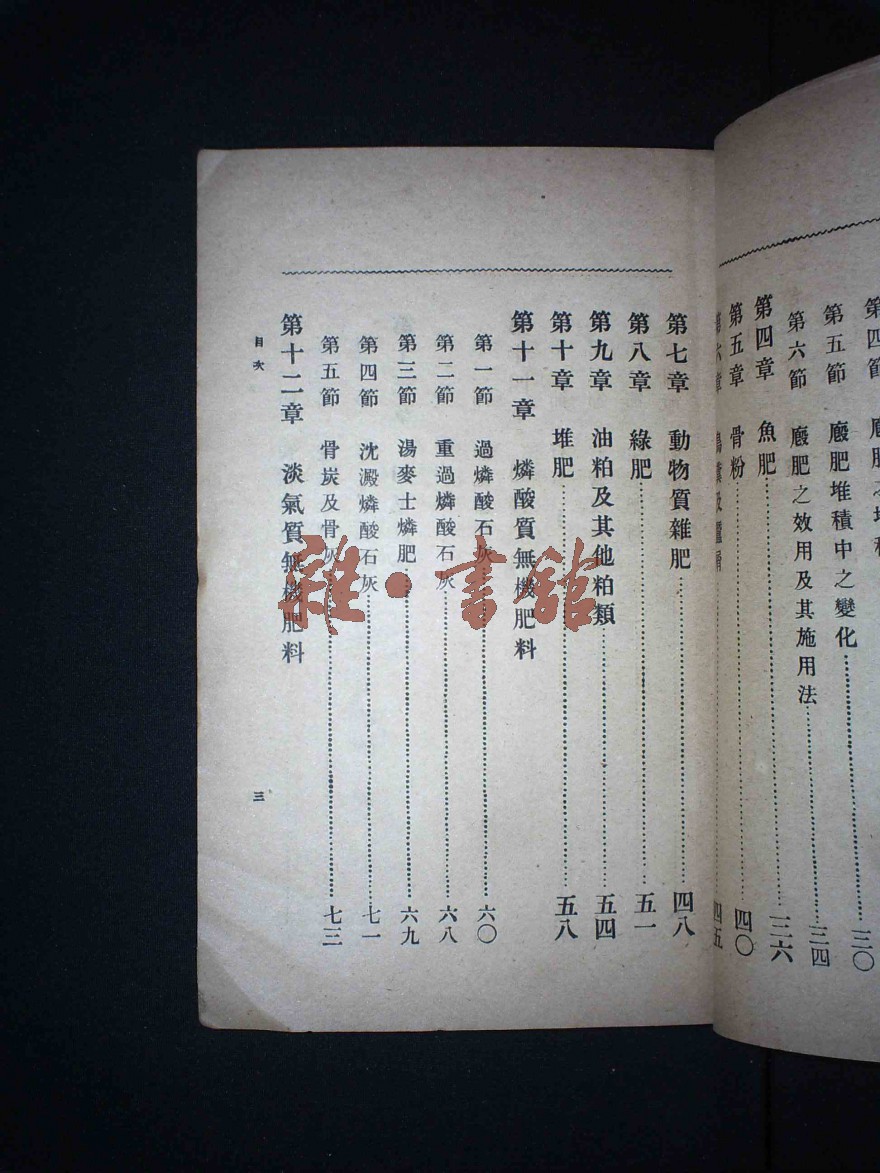 第四節
第五節 廄肥堆積中之變化……三〇
第六節 廄肥之效用及其施用法……三四
第四章 魚肥……三六
第五章 骨粉……四〇
第六章 四五
第七章 動物質雜肥……四八
第八章 綠肥……五一
第九章 油粕及其他粕類……五四
第十章 堆肥……五八
第十一章 燐酸質無機肥料
第一節 過燐酸石灰……六〇
第二節 重過燐酸石灰……六八
第三節 湯麥士燐肥……六九
第四節 沈澱燐酸石灰……七一
第五節 骨炭及骨灰……七三
第十二章 淡氣質無機肥料
目次
三
雜·書館